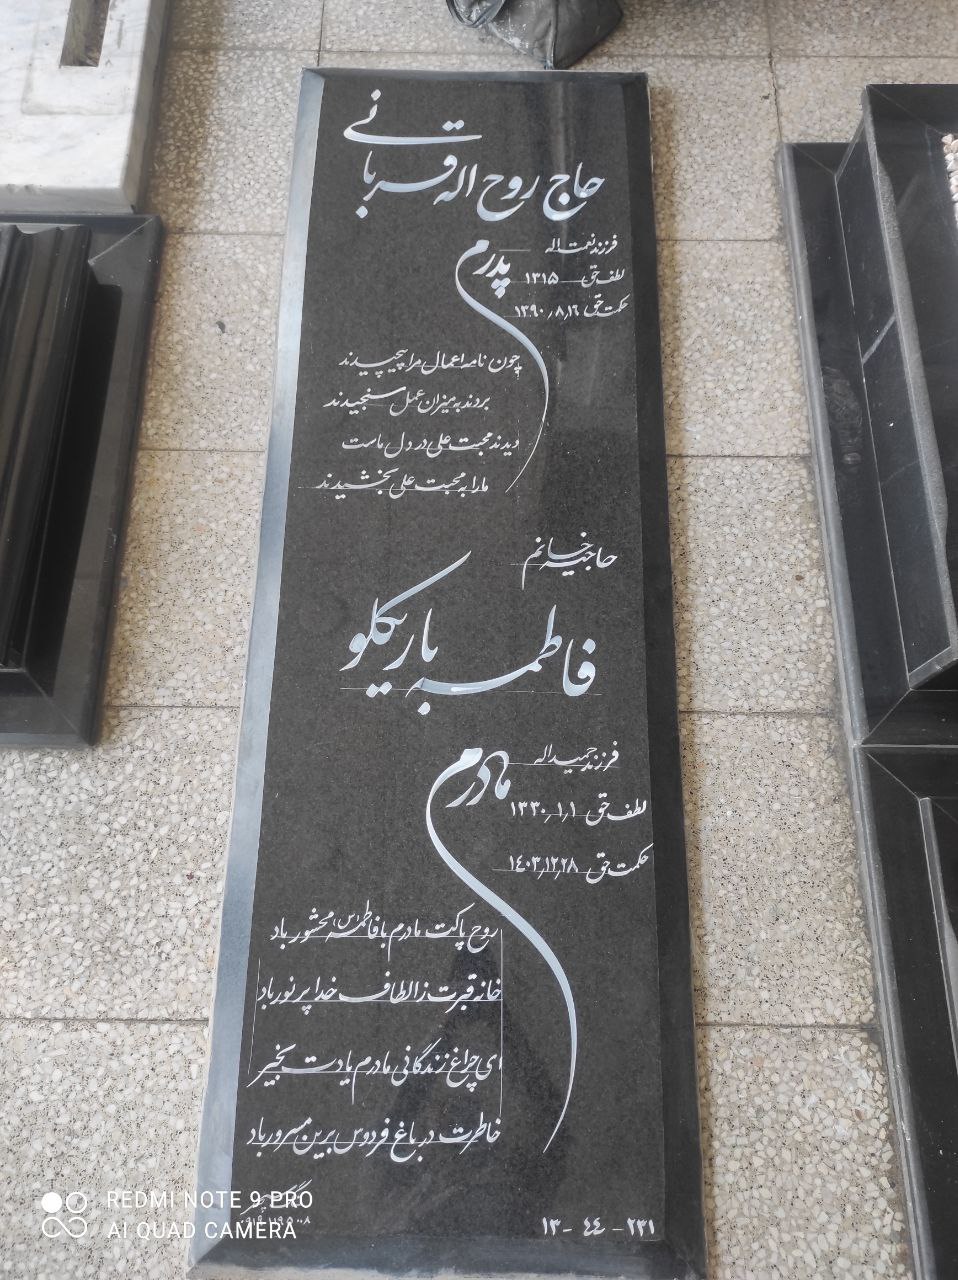 حاج روح اله قربانی
فرزند نعمت اله
پدرم
لطف حق ۱۳۱۵
حکمت حق ۱۳۹۰٫۸٫۱۶
چون نامه اعمال مرا پیچیدند
بردند به میزان عمل سنجیدند
دیدند محبت علی در دل ماست
ما را به محبت علی بخشیدند
حاجیه خانم
فاطمه باریکلو
فرزند حمیداله
مادرم
لطف حق ۱۳۳۰٫۱٫۱
حکمت حق ۱۴۰۳٫۱۲٫۲۸
روح پاکت مادرم با فاطمه (س) محشور باد
خانه قبرت ز الطاف خدا پر نور باد
ای چراغ زندگانی مادرم یادت بخیر
خاطرت در باغ فردوس برین مسرور باد
۱۳- ۴۴ - ۲۳۱
REDMI NOTE 9 PRO
AI QUAD CAMERA